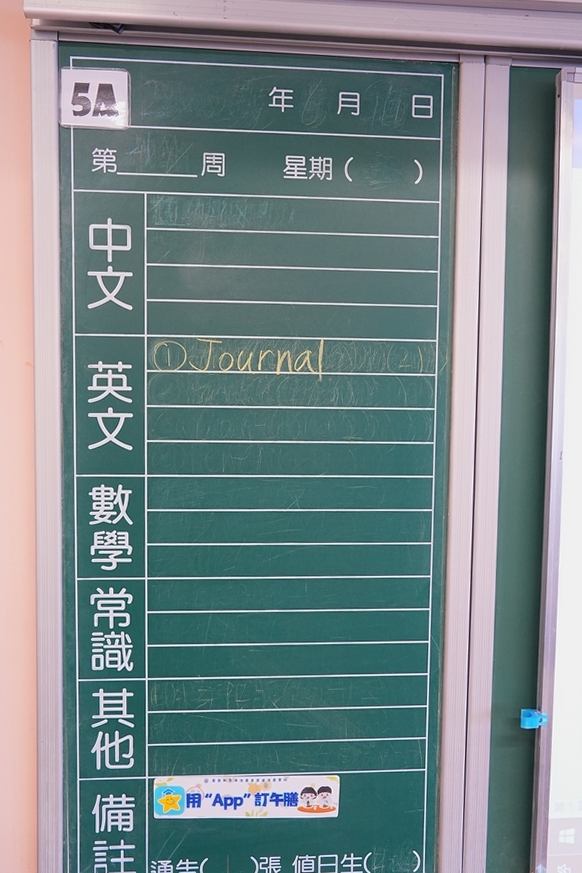 5A
年 月 日
第______周 星期( )
中文
①Journal
英文
數學
常識
其他
備註
用“App”訂午膳
通告( )張 值日生( )